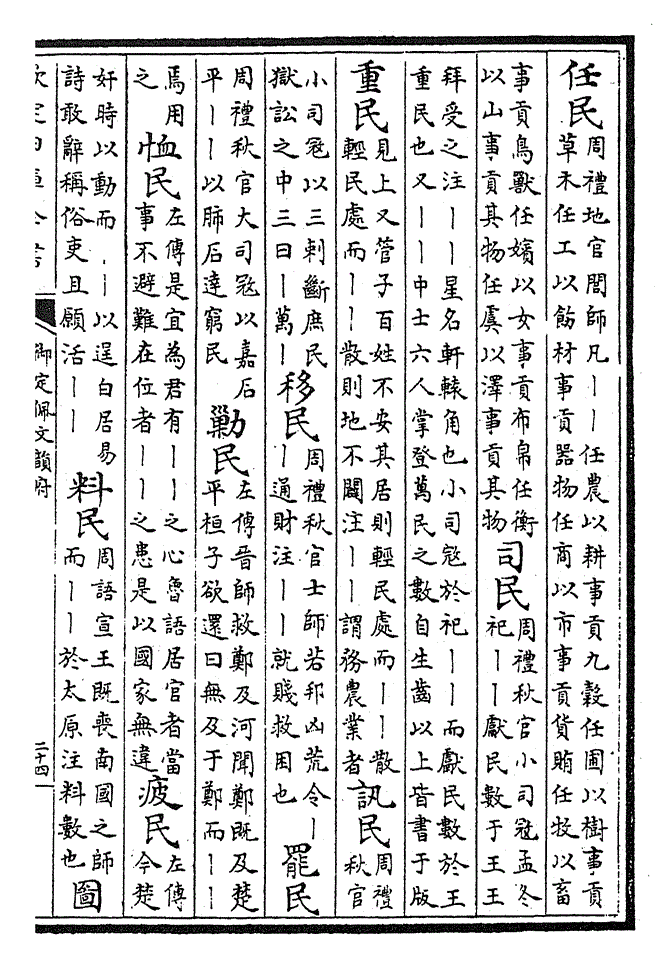 任民
周禮地官閭師凡丨丨任農以耕事貢九穀任圃以樹事貢
草木任工以飭材事貢器物任商以市事貢貨賄任牧以畜
事貢鳥獸任嬪以女事貢布帛任衡
以山事貢其物任虞以澤事貢其物
司民
周禮秋官小司寇孟冬
祀丨丨獻民數于王王
拜受之注丨丨星名軒轅角也小司寇於祀丨丨而獻民數於王
重民也又丨丨中士六人掌登萬民之數自生齒以上皆書于版
重民
見上又管子百姓不安其居則輕民處而丨丨散
輕民處而丨丨散則地不闢注丨丨謂務農業者
訊民
周禮
秋官
小司寇以三剌斷庶民
獄訟之中三曰丨萬丨
移民
周禮秋官士師若邦凶荒令丨
丨通財注丨丨就賤救困也
罷民
周禮秋官大司寇以嘉石
平丨丨以肺石達窮民
勦民
左傳晉師救鄭及河聞鄭既及楚
平桓子欲還曰無及于鄭而丨丨
焉用
之
恤民
左傳是宜為君有丨丨之心魯語居官者當
事不避難在位者丨丨之患是以國家無違
疲民
左傳
今楚
奸時以動而丨丨以逞白居易
詩敢辭稱俗吏且願活丨丨
料民
周語宣王既喪南國之師
而丨丨於太原注料數也
圖
欽定四庫全書
御定佩文韻府
二十四